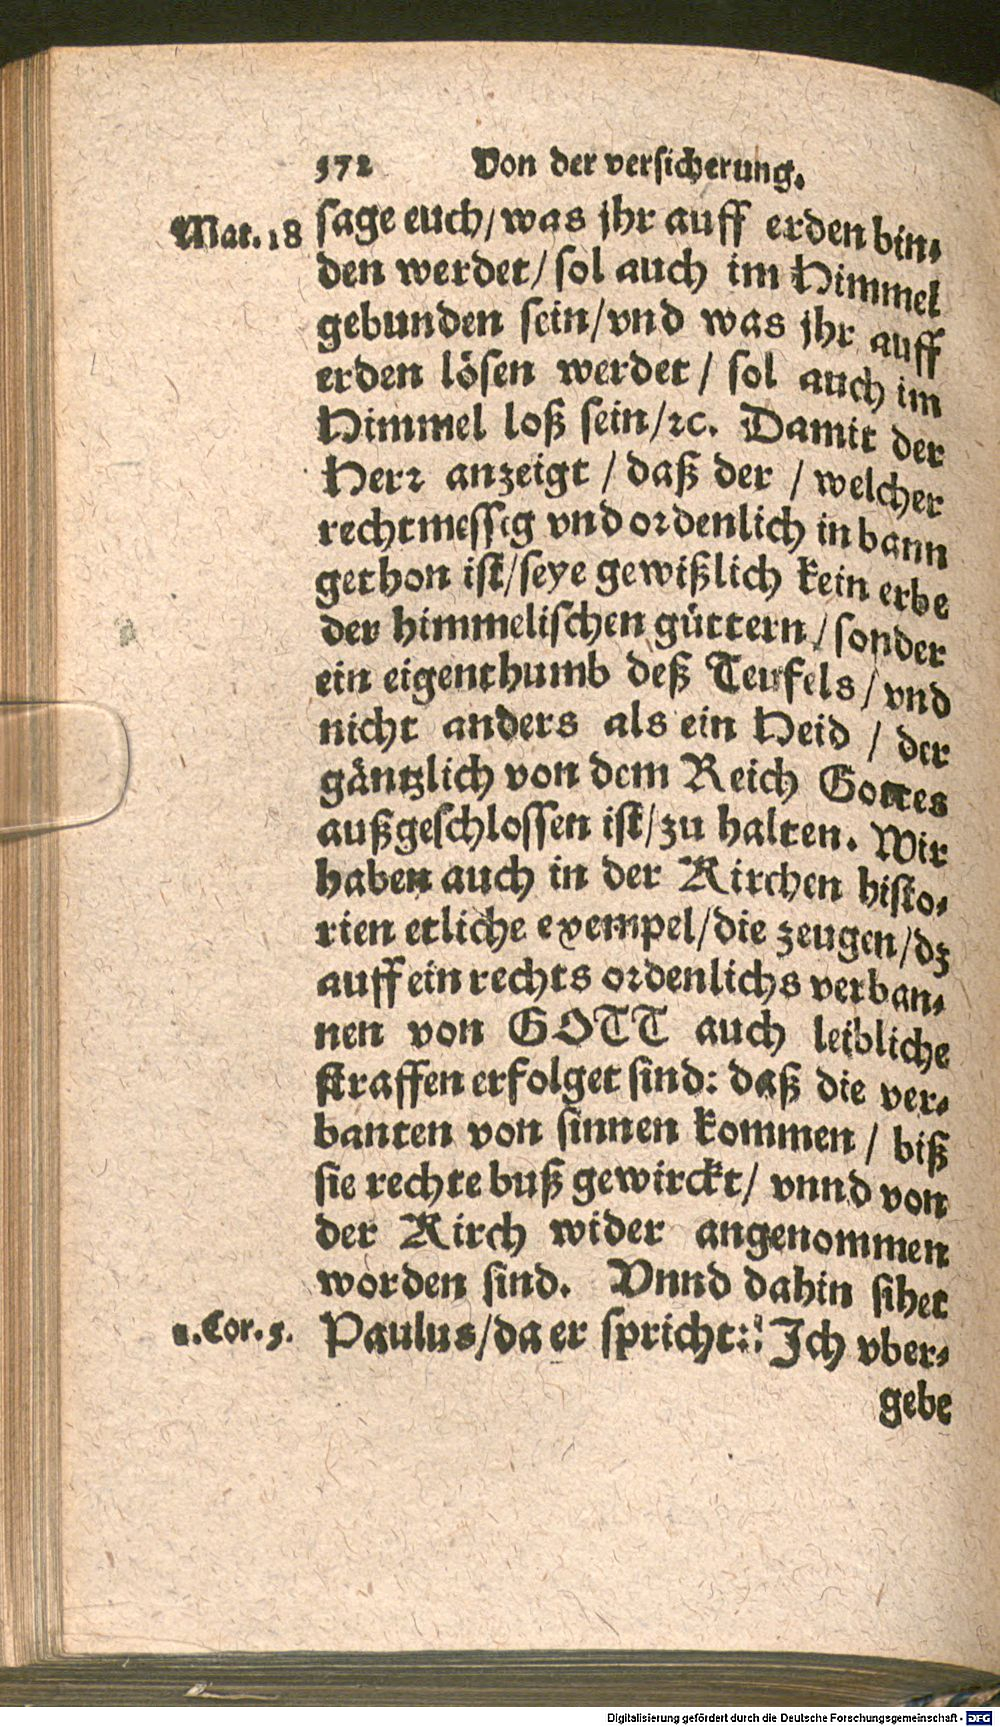 572 Von der versicherung.
Mat. 18 sage euch/was jhr auff erden bin-
den werdet/ sol auch im Himmel
gebunden sein/vnd was jhr auff
erden lösen werdet / sol auch im
Himmel loß sein/ꝛc. Damit der
Herꝛ anzeigt / daß der / welcher
rechtmessig vnd oꝛdenlich in bann
gethon ist/seye gewißlich kein erbe
der himmelischen güttern/ sonder
ein eigenthumb deß Teufels / vnd
nicht anders als ein Heid / der
gäntzlich von dem Reich Gottes
außgeschlossen ist/zu halten. Wir
haben auch in der Kirchen histo-
rien etliche exempel/die zeugen/dz
auff ein rechts oꝛdenlichs verban-
nen von GOTT auch leibliche
straffen erfolget sind: daß die ver-
banten von sinnen kommen / biß
sie rechte buß gewirckt/ vnnd von
der Kirch wider angenommen
worden sind. Vnnd dahin sihet
1. Cor. 5. Paulus/da er spricht: Ich vber-
gebe
Digitalisierung gefördert durch die Deutsche Forschungsgemeinschaft - DFG